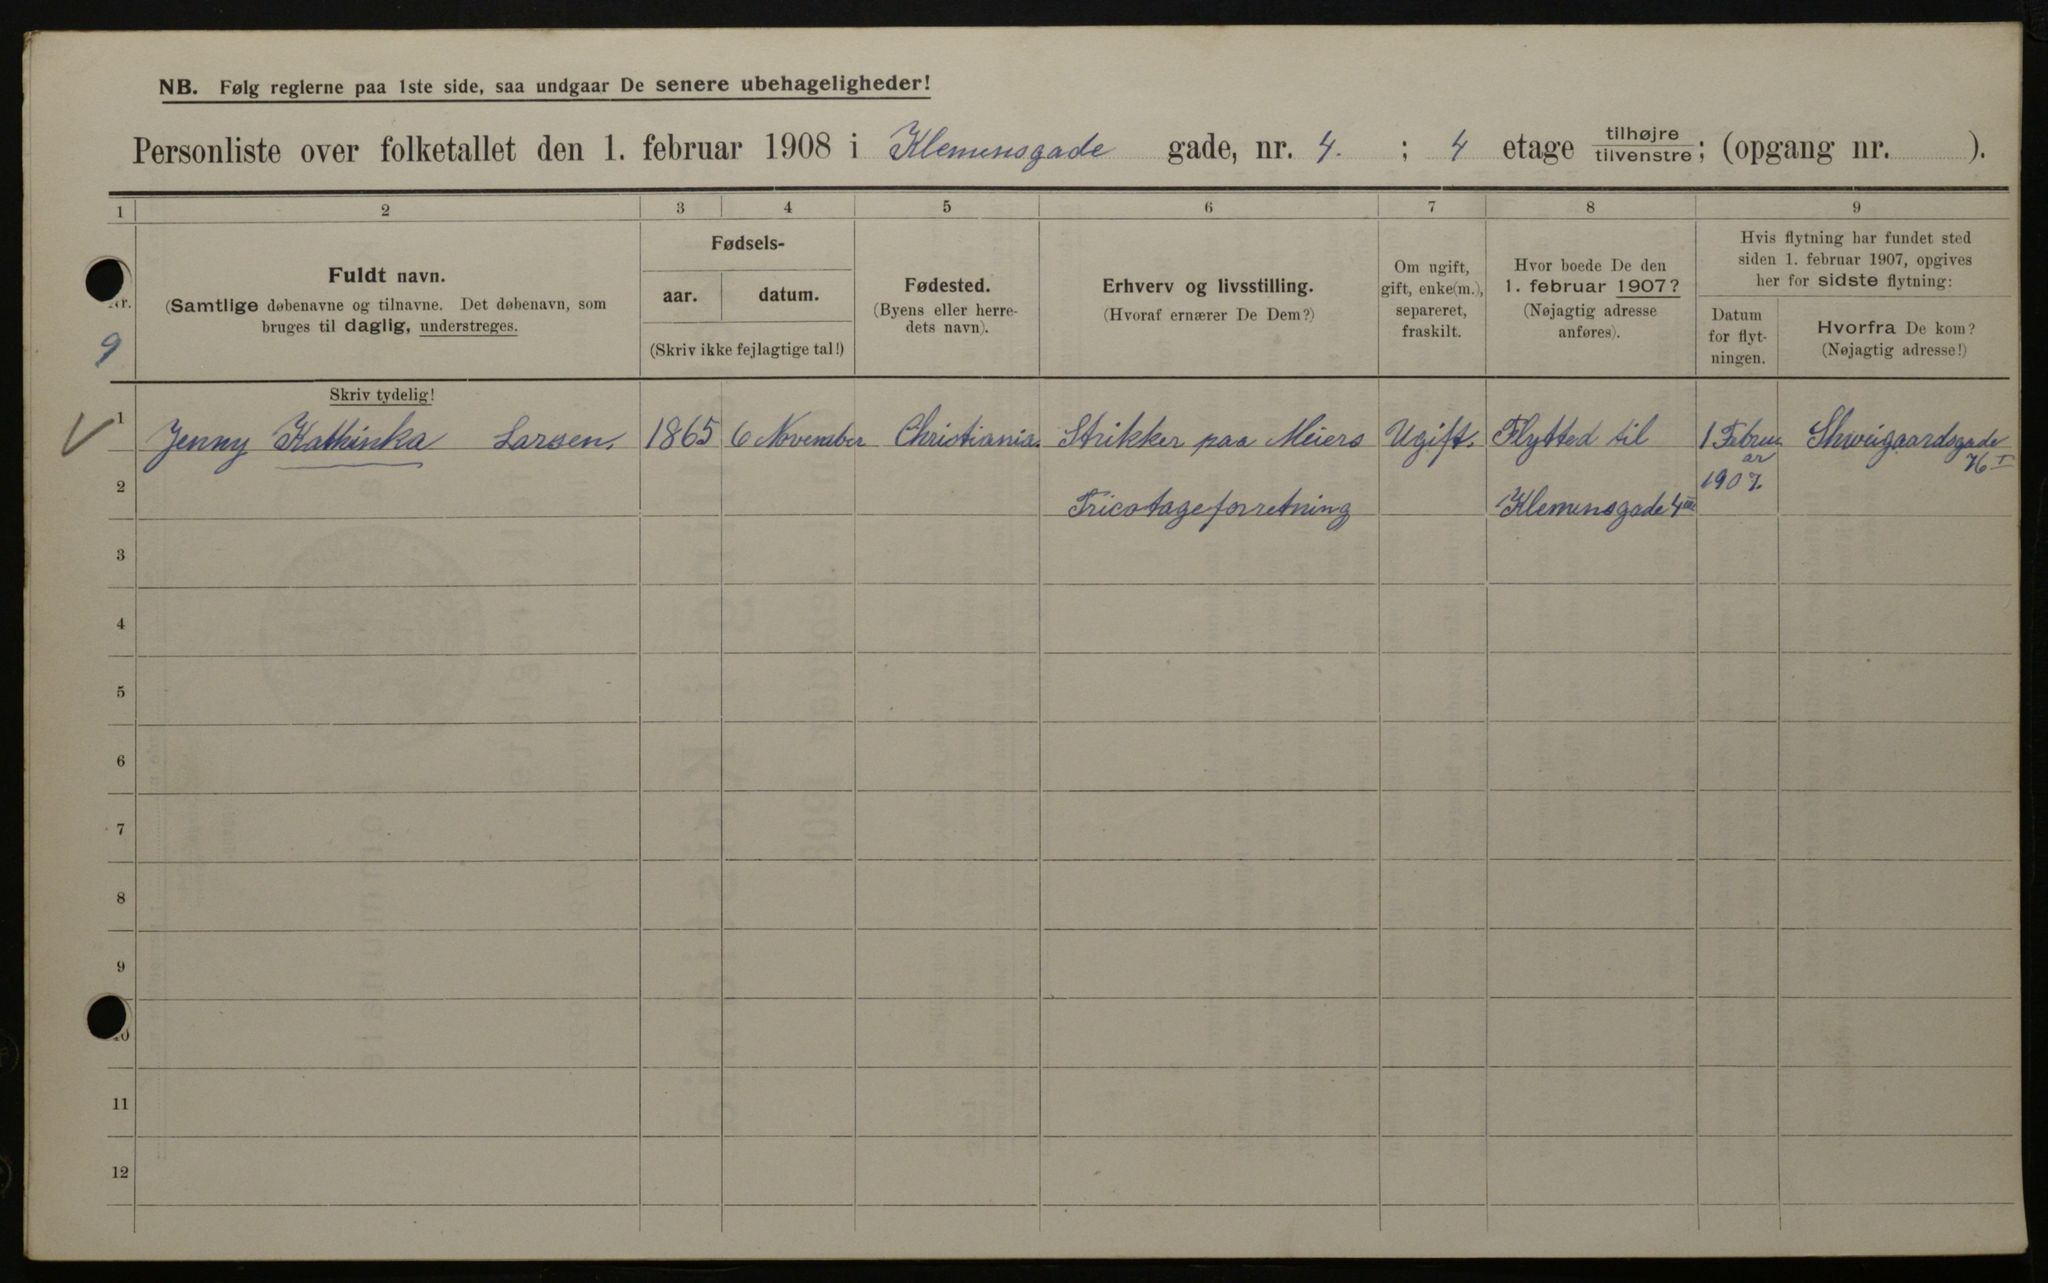 NB. Følg reglerne paa 1ste side, saa undgaar De senere ubehageligheder!
Personliste over folketallet den 1. februar 1908 i Klemensgade gade, nr. 4. ; 4 etage tilhøjre/tilvenstre; (opgang nr. ).
1 2 3 4 5 6 7 8 9
Nr.
Fuldt navn.
(Samtlige døbenavne og tilnavne. Det døbenavn, som
bruges til daglig, understreges.
Skriv tydelig!
Fødsels-
aar. datum.
(Skriv ikke fejlagtige tal!)
Fødested.
(Byens eller herre-
dets navn).
Erhverv og livsstilling.
(Hvoraf ernærer De Dem?)
Om ugift,
gift, enke(m.),
separeret,
fraskilt.
Hvor boede De den
1. februar 1907?
(Nøjagtig adresse
anføres).
Hvis flytning har fundet sted
siden 1. februar 1907, opgives
her for sidste flytning:
Datum
for flyt-
ningen.
Hvorfra De kom?
(Nøjagtig adresse!)
9
1 Jenny Kathinka Larsen. 1865 6 November Christiania. Strikker paa Meiers Ugift. Flytted til 1 Febru Shweigaardsgade
ar 76 I
2 Tricotageforretning Klemensgade 4 III 1907.
3
4
5
6
7
8
9
10
11
12